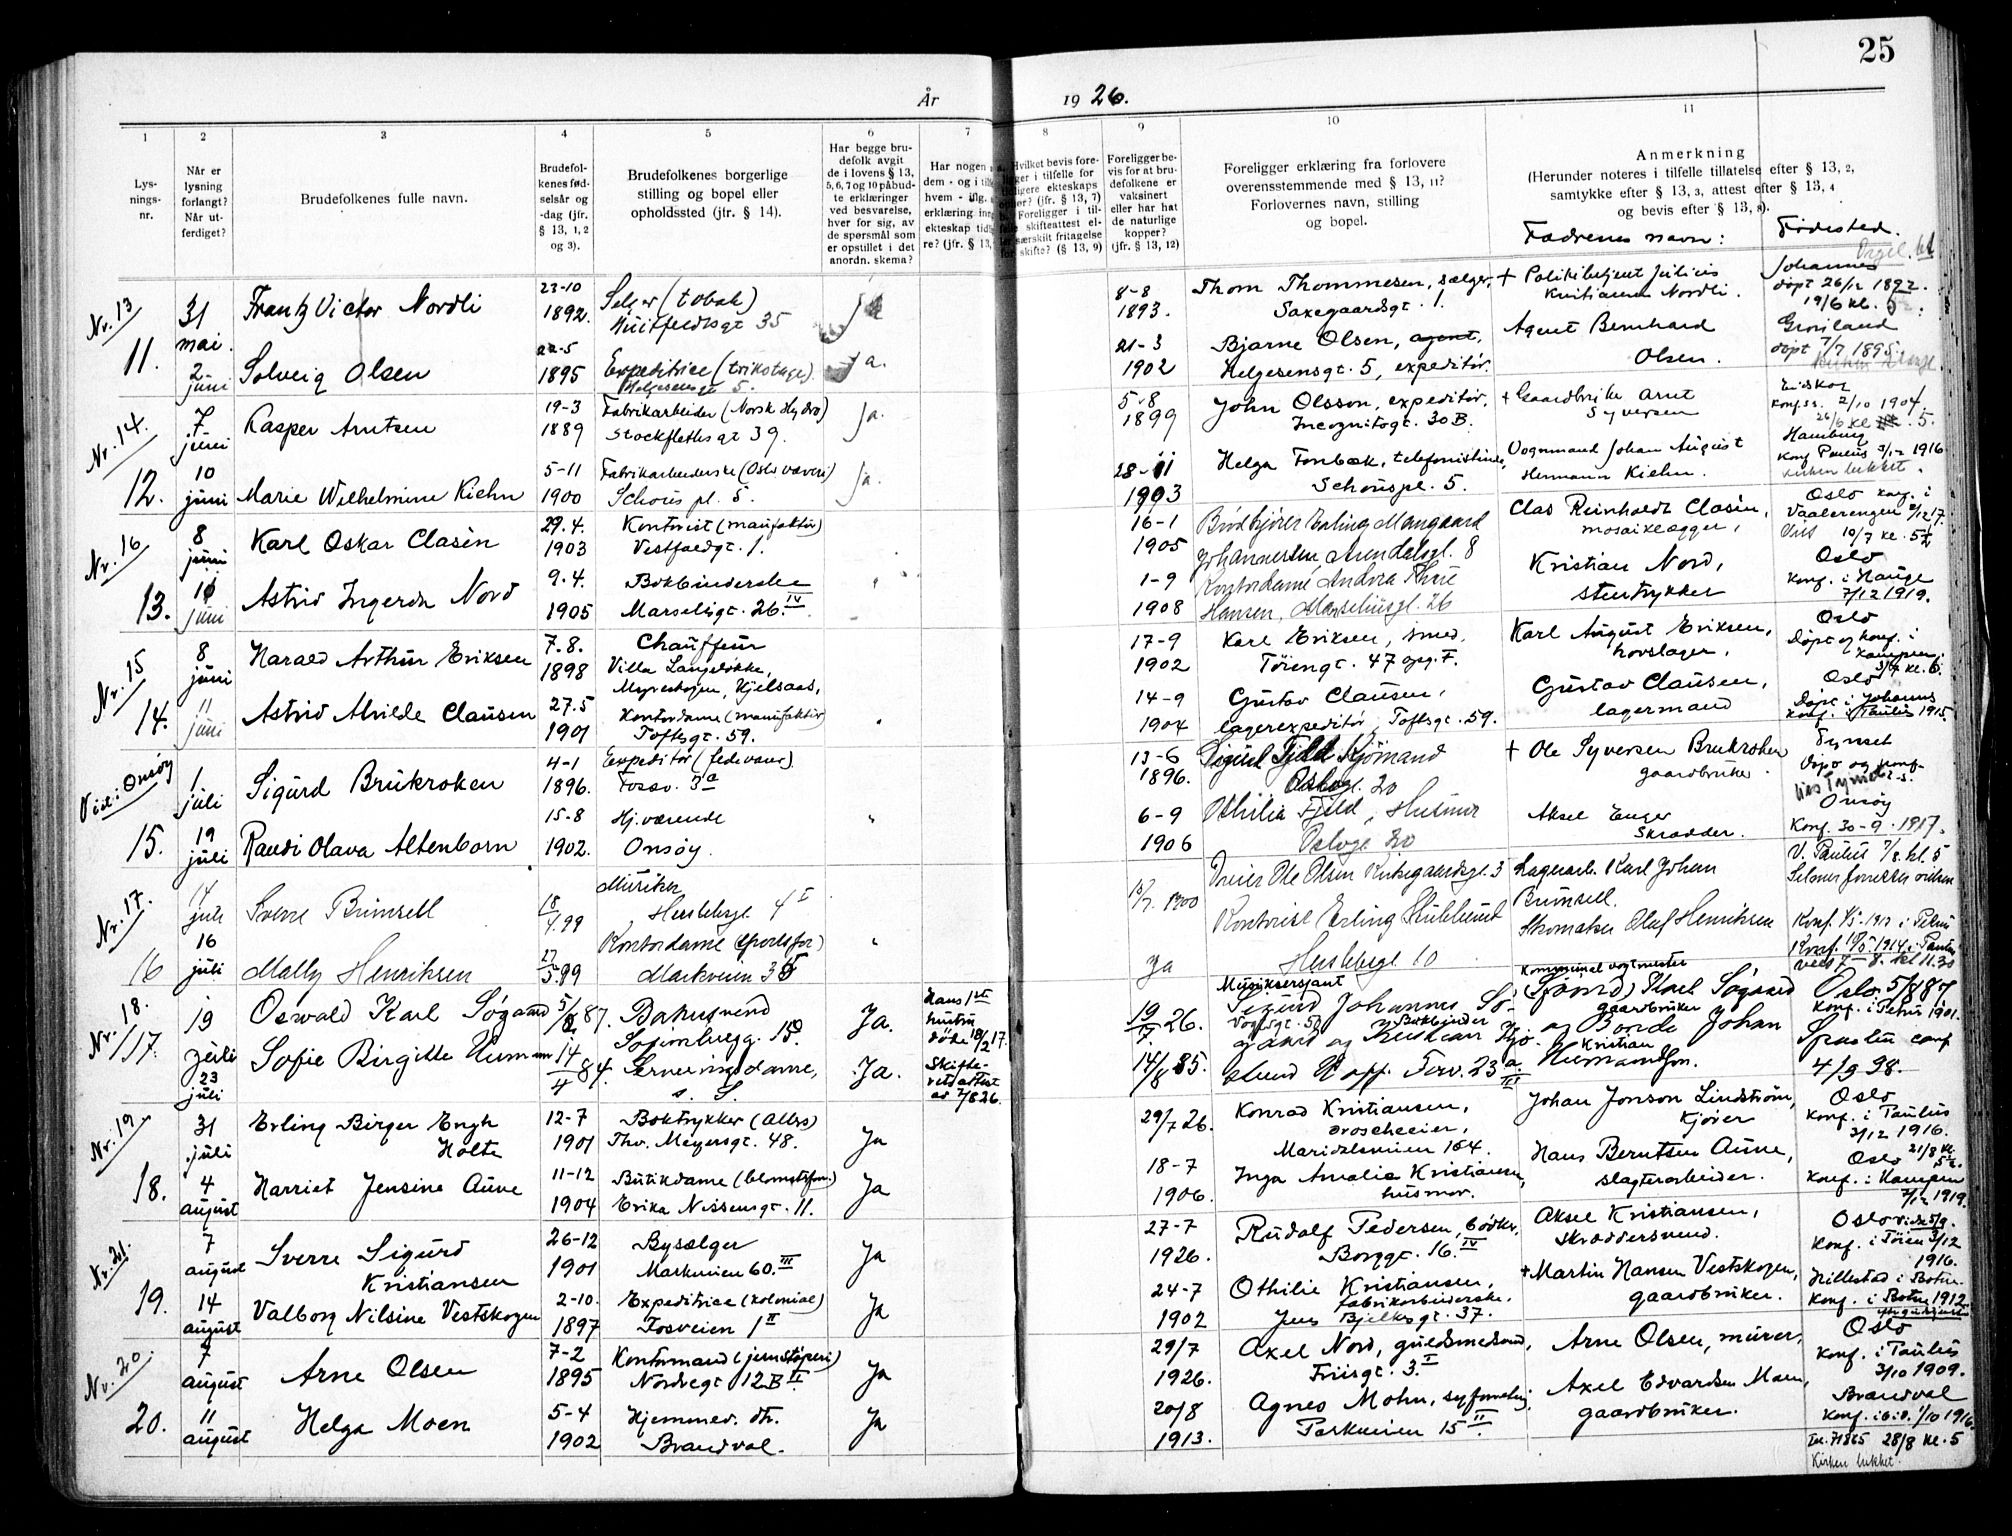 25
År 1926.
1 2 3 4 5 6 7 8 9 10 11
Lysningsnr.
Når er lysning forlangt? Når utferdiget?
Brudefolkenes fulle navn.
Brudefolkenes fødselsår og -dag (jfr. § 13, 1, 2 og 3).
Brudefolkenes borgerlige stilling og bopel eller opholdssted (jfr. § 14).
Har begge brudefolk avgit de i lovens § 13, 5, 6, 7 og 10 påbudte erklæringer ved besvarelse, hver for sig, av de spørsmål som er opstillet i det anordn. skema?
Har nogen
dem - og i
hvem -
erklæring
ekteskap
re? (jfr. § 13,
Hvilket bevis fore-
i tilfelle for
ekteskaps
(jfr. § 13, 7)
Foreligger i til-
skifteattest el-
særskilt fritagelse
for skifte? (§ 13, 9)
Foreligger bevis for at brudefolkene er vaksinert eller har hat de naturlige kopper? (jfr. § 13, 12)
Foreligger erklæring fra forlovere overensstemmende med § 13, 11? Forlovernes navn, stilling og bopel.
Anmerkning
(Herunder noteres i tilfelle tillatelse efter § 13, 2,
samtykke efter § 13, 3, attest efter § 13, 4
og bevis efter § 13, 8).
Fædrenes navn: Fødested.
Nr. 13
11.
31 mai. Frantz Victor Nordli 23-10 1892. Selger (tobak) Huitfeldtsgt 35 Ja
8-8 1893. Thom Thommesen, sælger, Saxegaardsgt. 1. + Politibetjent Julius Kristiansen Nordli. Johannes døpt 26/12 1892. 19/6 kl.
2 juni Solveig Olsen 22-5 1895 Expeditrice (trikotage). Helgesensgt 5. Ja.
21-3 1902 Bjarne Olsen, agent, Helgesensgt. 5, expeditør. Agent Bernhard Olsen. Grønland døpt 7/7 1895.
Nr. 14.
12.
7 juni Kasper Arntsen 19-3 1889 Fabrikarbeider (Norsk Hydro) Stockflethsgt 39. Ja.
5-8 1899 John Olsson, expeditør, Incognitogt. 30B. + Gaardbruker Arnt Syversen Eidskog Konf. ss. 2/10 1904. 26/6 kl. 5.
10 juni Marie Wilhelmine Kiehn 5-11 1900 Fabrikarbeiderske (Oslo væveri) Schous pl. 5. Ja.
28-11 1903 Helga Fonbæk, telefonistinde, Schouspl. 5. Vognmand Johan August Hermann Kiehn. Hamburg Konf Paulus 3/12 1916 Kirken lukket.
Nr. 16
13.
8 juni Karl Oskar Clasèn 29.4. 1903 Kontorist (manufaktur) Vestfoldgt. 1.
16-1 1905 Brødkjører Erling Mangaard Johannessen, Arendalsgt. 8 Clas Reinholdt Clasèn, mosaiklægger, Oslo konf. i Vaalerengen 2/12 17. Viet 10/7 kl. 5½
10 juni Astrid Ingerda Nord 9.4. 1905 Bokbinderske Marseligt. 26. IV
1-9 1908 Kontordame Andora Thrie Hansen, Marseliusgt. 26 Kristian Nord, stentrykker Oslo Konf. i Hauge 7/12 1919.
Nr. 15
14.
8 juni Harald Arthur Eriksen 7.8. 1898 Chauffeur Villa Langeløkke, Myrerskogen, Kjelsaas,
17-9 1902 Karl Eriksen, smed. Tøiengt. 47 opg. F. Karl August Eriksen, hovslager, Oslo Døpt og konf. i Kampen. 3/7 kl. 6.
11 juni Astrid Alvilde Clausen 27.5 1901 Kontordame (manufaktur) Toftsgt. 59.
14-9 1904 Gustav Clausen, lagerexpeditør, Toftsgt. 59. Gustav Clausen, lagermand Oslo Døpt i Johannes Konf. i Paulus 1915.
Viet i Onsøy
15.
1 juli Sigurd Brukroken 4-1 1896. Expeditør (fedevarer) Fossv. 3a
13-6 1896. Sigurd Fjeld Sjømand Oslogt. 20 + Ole Syversen Brukroken gaardbruker. Tynset Døpt og konf.
19 juli Randi Olava Altenborn 15-8 1902. Hj. værende Onsøy.
6-9 1906 Othilia Fjeld, Husmor Oslogt 20 Aksel Enger Skrædder. Onsøy Konf. 30-9-1917.
Nr. 17.
16
14 juli Sverre Brunsell 18/4.99 Musiker Herslebsgt 4 I
10/7. 1900 Dreier Ole Olsen Kirkegaardsgt. 3 Lagerarb. Karl Johan Brunsell. V. Paulus 7/8. kl. 5
16 juli Mally Henriksen 27/5.99 Kontordame (sportsfor) Markveien 35
Ja Kontorist Erling Herslebsgt 10 Skomaker Olaf Henriksen Konf. 1914 i Paulus
Nr. 18.
17.
19 juli Oswald Karl Søgaard 5/8 87. Bakersvend Sofienbergg. 15. Ja. Hans 1st hustru døde 18/2 17.
19/7. 26. Musiksersjant Sigurd Johannes Søgaard Vogtsgt. 50 og Bokbinder Kristian Kommunal vogtmester Karl Søgaard Oslo. 5/8 87 Konf. i Petrus 1901.
23 juli Sofie Birgitte Humann 14/4 84. Serveringsdame, s. S. Ja. Skifteretsattest av 7/8 26.
14/8 85. 23 III gaardbruker og Bonde Johan Kristian 4/9 98.
Nr. 19
18.
31 juli Erling Birger Engh Holte 12-7 1901 Boktrykker (Allers) Thv. Meyersgt. 48. Ja
29/7 26. Konrad Kristiansen, droscheeier, Maridalsveien 164. Johan Jonson Lindstrøm, Kjører Oslo Konf. i Paulus 3/12 1916. 21/8 kl. 5½.
4 august Harriet Jensine Aune 11-12 1904 Butikdame (blomsterfor.) Erika Nissensgt. 11. Ja
18-7 1906. Inga Amalia Kristiansen, husmor. Hans Berntsen Aune, slagterarbeider. Oslo Konf. i Kampen 7/12 1919.
Nr. 21.
19.
7 august Sverre Sigurd Kristiansen 26-12 1901 Bysælger Markveien 60. III Ja
27-7 1926. Rudolf Pedersen, bødker, Borggt. 16. IV Aksel Kristiansen, skræddersvend. Oslo Viede 5/9. Konf. i Tøien 3/12 1916.
14 august Valborg Nilsine Vestskogen 2-10. 1897 Expeditrice (kolonial) Fosveien 1 II Ja
24-7 1902 Othilie Kristiansen, fabrikarbeiderske, Jens Bjelkesgt. 37. + Martin Hansen Vestskogen, gaardbruker. Hillestad i Botne. Konf. i Botne 1912
Nr. 20.
20.
7 august Arne Olsen 7-2 1895 Kontormand (jernstøperi) Nordregt 12B II. Ja
29/7 1926. Axel Nord, guldsmedsvend, Friisgt. 3. I Arne Olsen, murer, Oslo Konf. i Paulus 3/10 1909.
11 august Helga Moen 5-4 1902 Hjemmev. dtr. Brandval. Ja
20/8 1913. Agnes Mohn, syforretning. Parkveien 15 II. Axel Edvardsen Moen, gaardbruker. Brandval Konf. ibid. 1/10 1916
Tel. 71865 28/8 kl. 5
Kirken lukket.